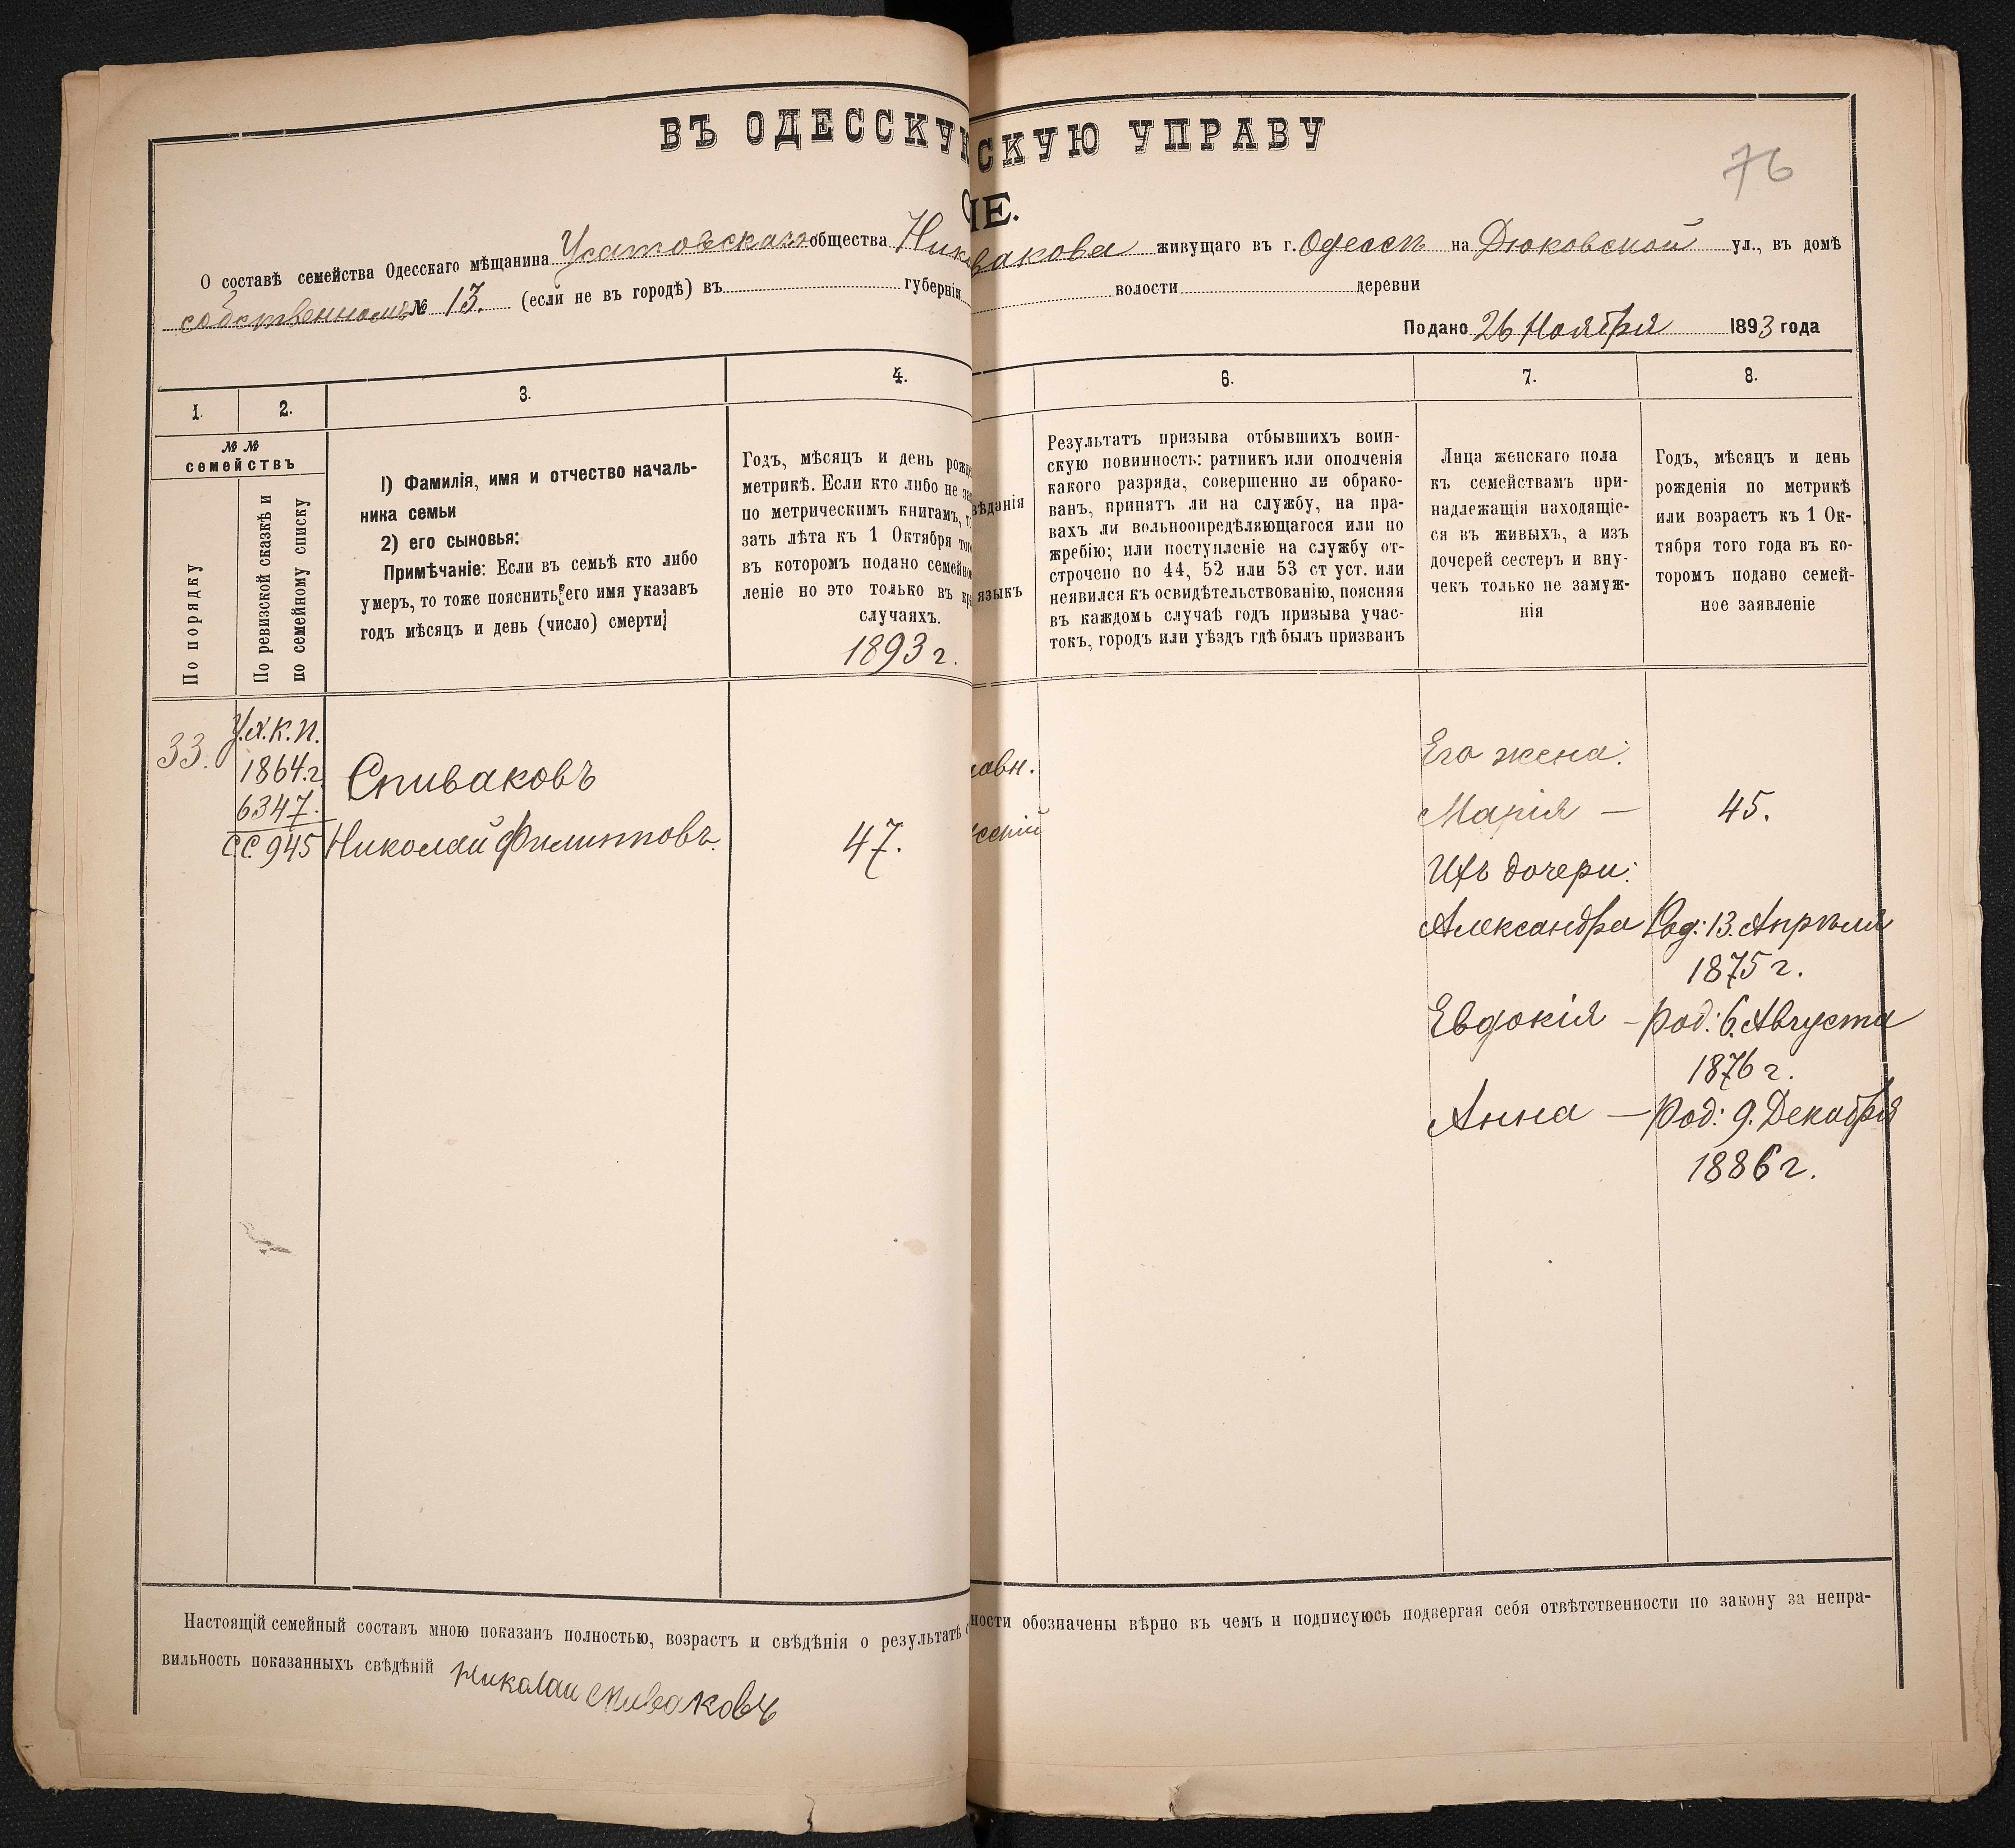 ВЪ ОДЕССКУЮ
О составѣ семейства Одесскаго мѣщанина Усатовскаго общества Ник
собственномъ № 13. (если не въ городѣ) въ губерніи
1. 2. 3. 4.
№ №
семействъ
По порядку
По ревизской сказкѣ и
по семейному списку
1) Фамилія, имя и отчество началь-
ника семьи
2) его сыновья:
Примѣчаніе: Если въ семьѣ кто либо
умеръ, то тоже пояснить его имя указавъ
годъ мѣсяцъ и день (число) смерти
Годъ, мѣсяцъ и день рожде
метрикѣ. Если кто либо не за
по метрическимъ книгамъ, т
зать лѣта къ 1 Октября того
въ которомъ подано семейное
леніе но это только въ кра
случаяхъ.
1893 г.
33.
У.х.к.п.
1864.г.
6347.
С.С. 945
Спиваковъ
Николай Филипповъ.
47.
Настоящій семейный составъ мною показанъ полностью, возрастъ и свѣдѣнія о результатѣ
вильность показанныхъ свѣдѣній Николаи Спиваковъ
СКУЮ УПРАВУ
76
ІЕ.
вакова живущаго въ г. Одессѣ на Дюковской ул., въ домѣ
волости деревни
Подано 26 Ноября 1893 года
6. 7. 8.
вѣданія
языкъ
Результатъ призыва отбывшихъ воин-
скую повинность: ратникъ или ополченія
какого разряда, совершенно ли обрако-
ванъ, принятъ ли на службу, на пра-
вахъ ли вольноопредѣляющагося или по
жребію; или поступленіе на службу от-
строчено по 44, 52 или 53 ст уст. или
неявился къ освидѣтельствованію, поясняя
въ каждомъ случаѣ годъ призыва учас-
токъ, городъ или уѣздъ гдѣ былъ призванъ
Лица женскаго пола
къ семействамъ при-
надлежащія находящіе-
ся въ живыхъ, а изъ
дочерей сестеръ и вну-
чекъ только не замуж-
нія
Годъ, мѣсяцъ и день
рожденія по метрикѣ
или возрастъ къ 1 Ок-
тября того года въ ко-
торомъ подано семей-
ное заявленіе
лавн.
сскій
Его жена:
Марія — 45.
Ихъ дочери:
Александра Род: 13. Апрѣля
1875 г.
Евдокія — род: 6. Августа
1876 г.
Анна — род: 9. Декабря
1886 г.
ности обозначены вѣрно въ чемъ и подписуюсь подвергая себя отвѣтственности по закону за непра-